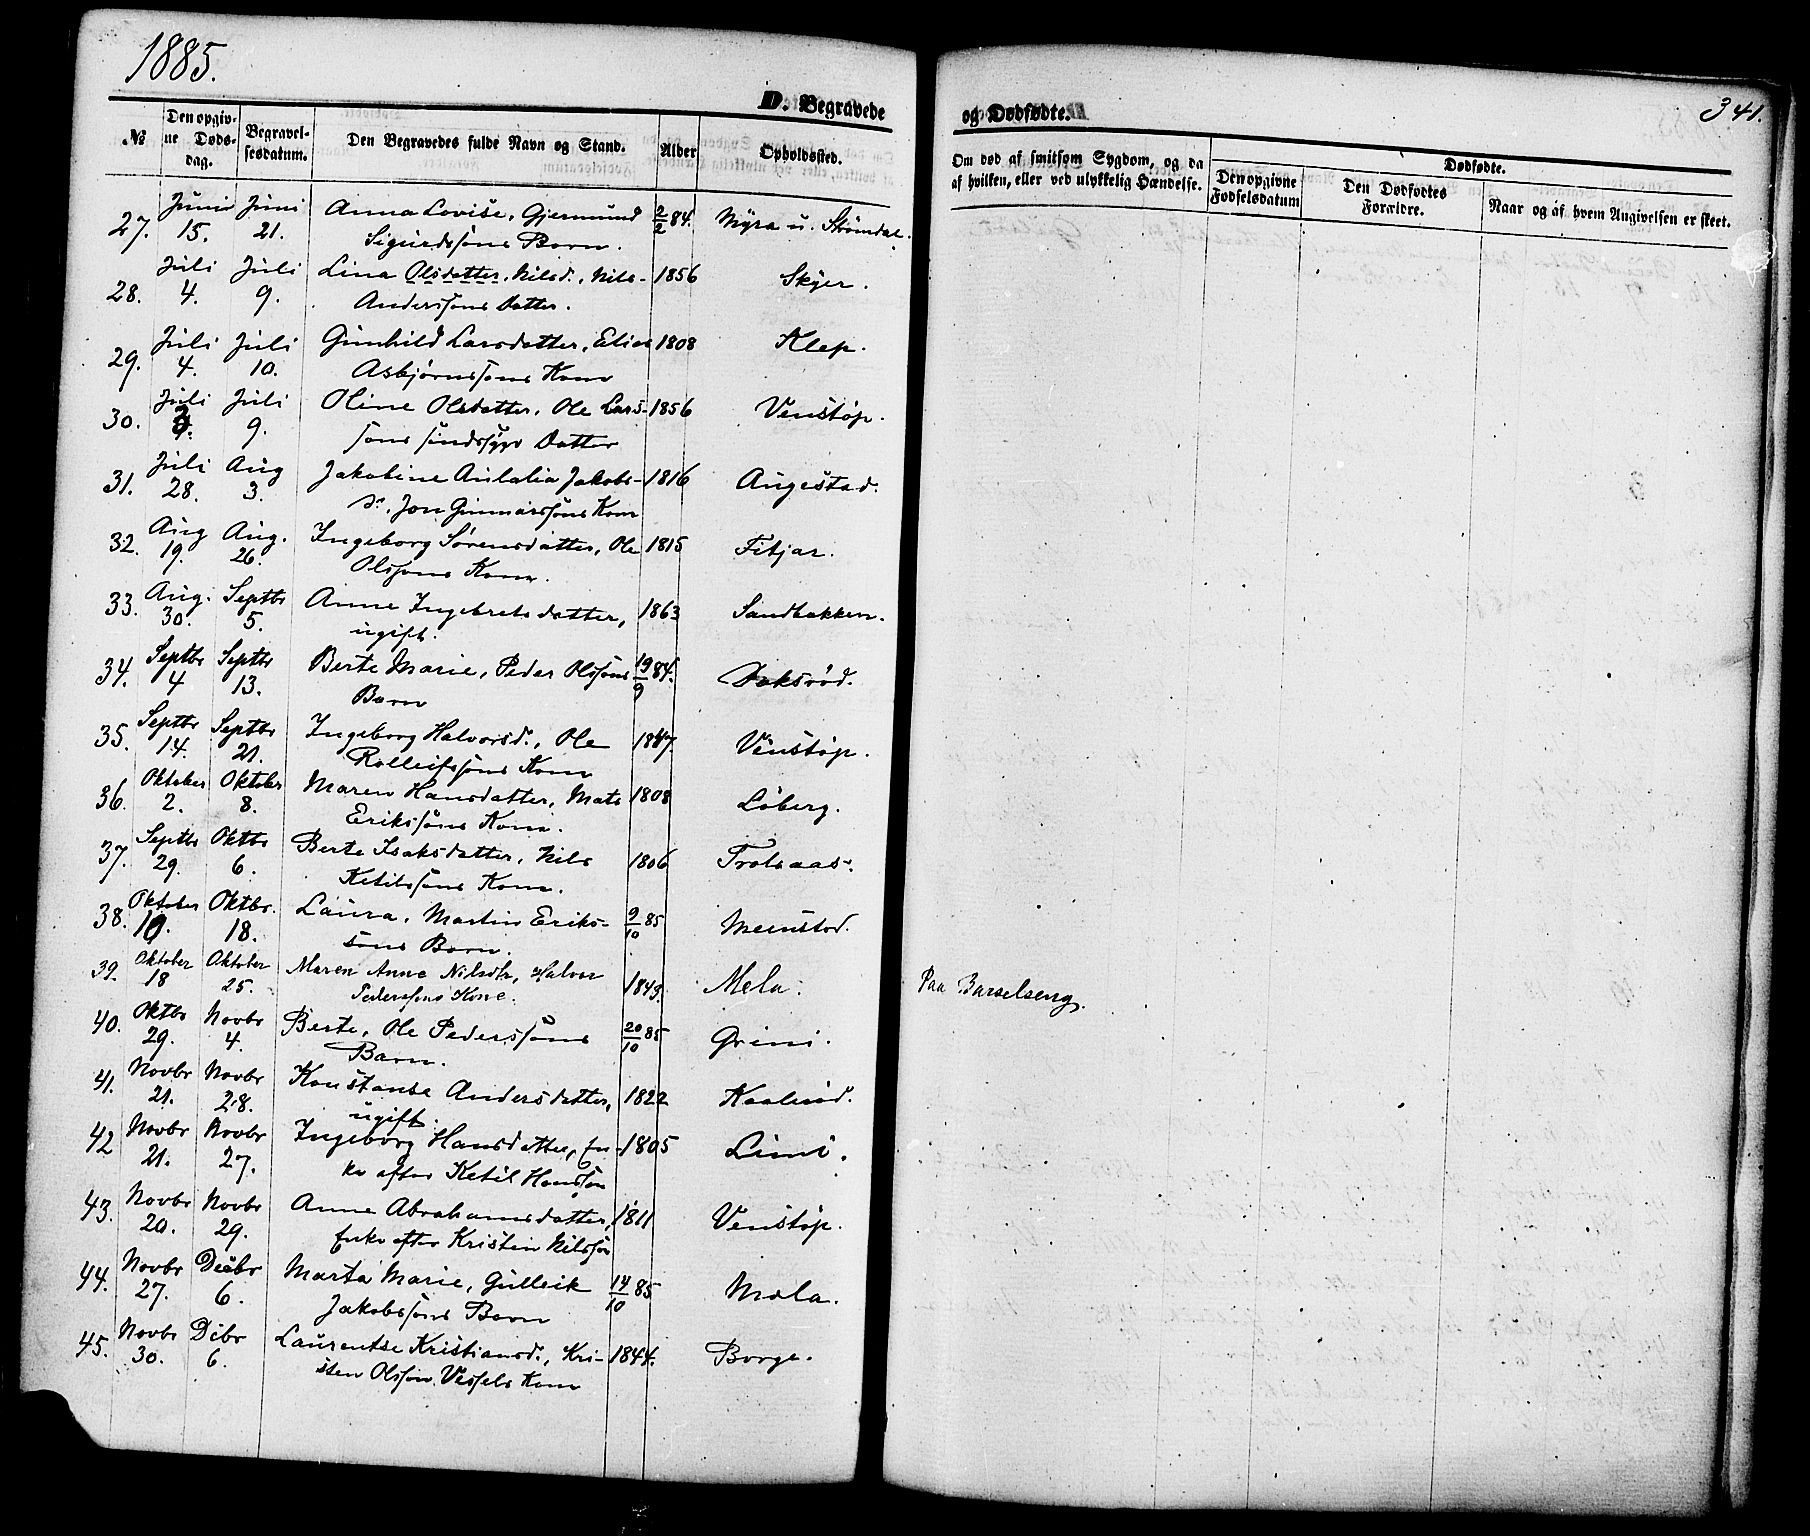 1885.
D. Begravede
og Dødfødte.
341.
№
Den opgivne Dødsdag.
Begravelsesdatum.
Den Begravedes fulde Navn og Stand.
Alder
Opholdssted.
Om død af smitsom Sygdom, og da af hvilken, eller ved ulykkelig Hændelse.
Dødfødte.
Den opgivne Fødselsdatum
Den Dødfødtes Forældre.
Naar og af hvem Angivelsen er skeet.
27. Juni 15. Juni 21. Anna Lovise, Gjermund 2/2 84. Myra u. Strömdal.
Sigurdssöns Barn.
28. Juli 4. Juli 9. Lina Olsdatter, Nilsd., Nils 1856 Skyer.
Anderssöns Datter.
29. Juli 4. Juli 10. Gunhild Larsdatter, Elias 1808 Klep.
Asbjørnssöns Kone
30. Juli Juli 9. Oline Olsdatter, Ole Lars- 1856 Venstöp.
söns sindssyge Datter
31. Juli 28. Aug 3. Jakobine Aulalia Jakobs- 1816 Augestad.
Dr. Jon Gunnarssöns Kone
32. Aug 19. Aug. 26. Ingeborg Sørensdatter, Ole 1815 Fitjar.
Olssöns Kone.
33. Aug. 30. Septbr 5. Anne Ingebretsdatter, 1863 Sandbakken.
ugift.
34. Septbr 4 Septbr 13. Berte Marie, Peder Olssöns 19/9 84.
Barn
35. Septbr 14. Septbr 21. Ingeborg Halvorsd., Ole 1847. Venstöp.
Rolleifssöns Kone
36. Oktober 2. Oktober 8. Maren Hansdatter, Mats 1808 Löberg.
Erikssöns Kone.
37. Septbr 29. Oktbr 6. Berte Isaksdatter, Nils 1806 Trolsaas.
Ketilssöns Kone.
38. Oktober 10. Oktbr. 18. Laura, Martin Eriks- 9/10 85 Meenstad.
söns Barn.
39. Oktober 18 Oktober 25. Maren Anne Nilsdtr, Halvor 1843. Mela. Paa Barselseng.
Pederssöns Kone.
40. Oktbr 29. Novbr 4. Berte, Ole Pederssöns 20/10 85 Grini.
Barn.
41. Novbr 21. Novbr 28. Konstanse Andersdatter, 1822 Kaalröd.
ugift.
42 Novbr 21. Novbr 27. Ingeborg Hansdatter, En- 1805 Limi.
ke efter Ketil Hanssön
43. Novbr 20. Novbr 29. Anne Abrahamsdatter, 1811 Venstöp.
Enke efter Kristen Nilssön
44. Novbr 27. Decbr 6. Marta Marie, Gulleik 14/10 85 Mæla.
Jakobssöns Barn
45. Novbr 30. Debr 6. Laurentse Kristiansd., Kri- 1844. Borge.
sten Olssön Vessels Kone